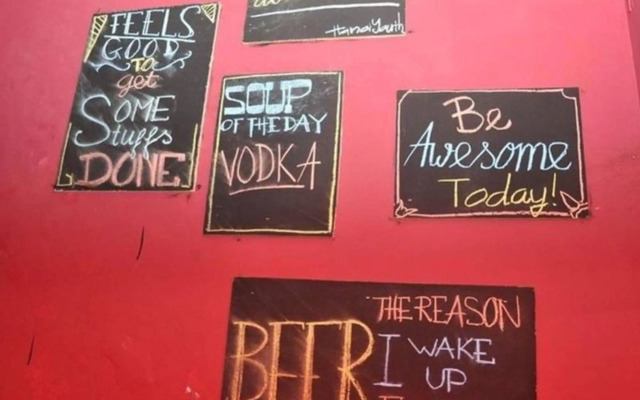 FEELS
GOOD
TO
get
SOME
Stuffs
DONE
Hanoi Youth
SOUP
OF THE DAY
VODKA
Be
Awesome
Today!
BEER
THE REASON
I WAKE
UP